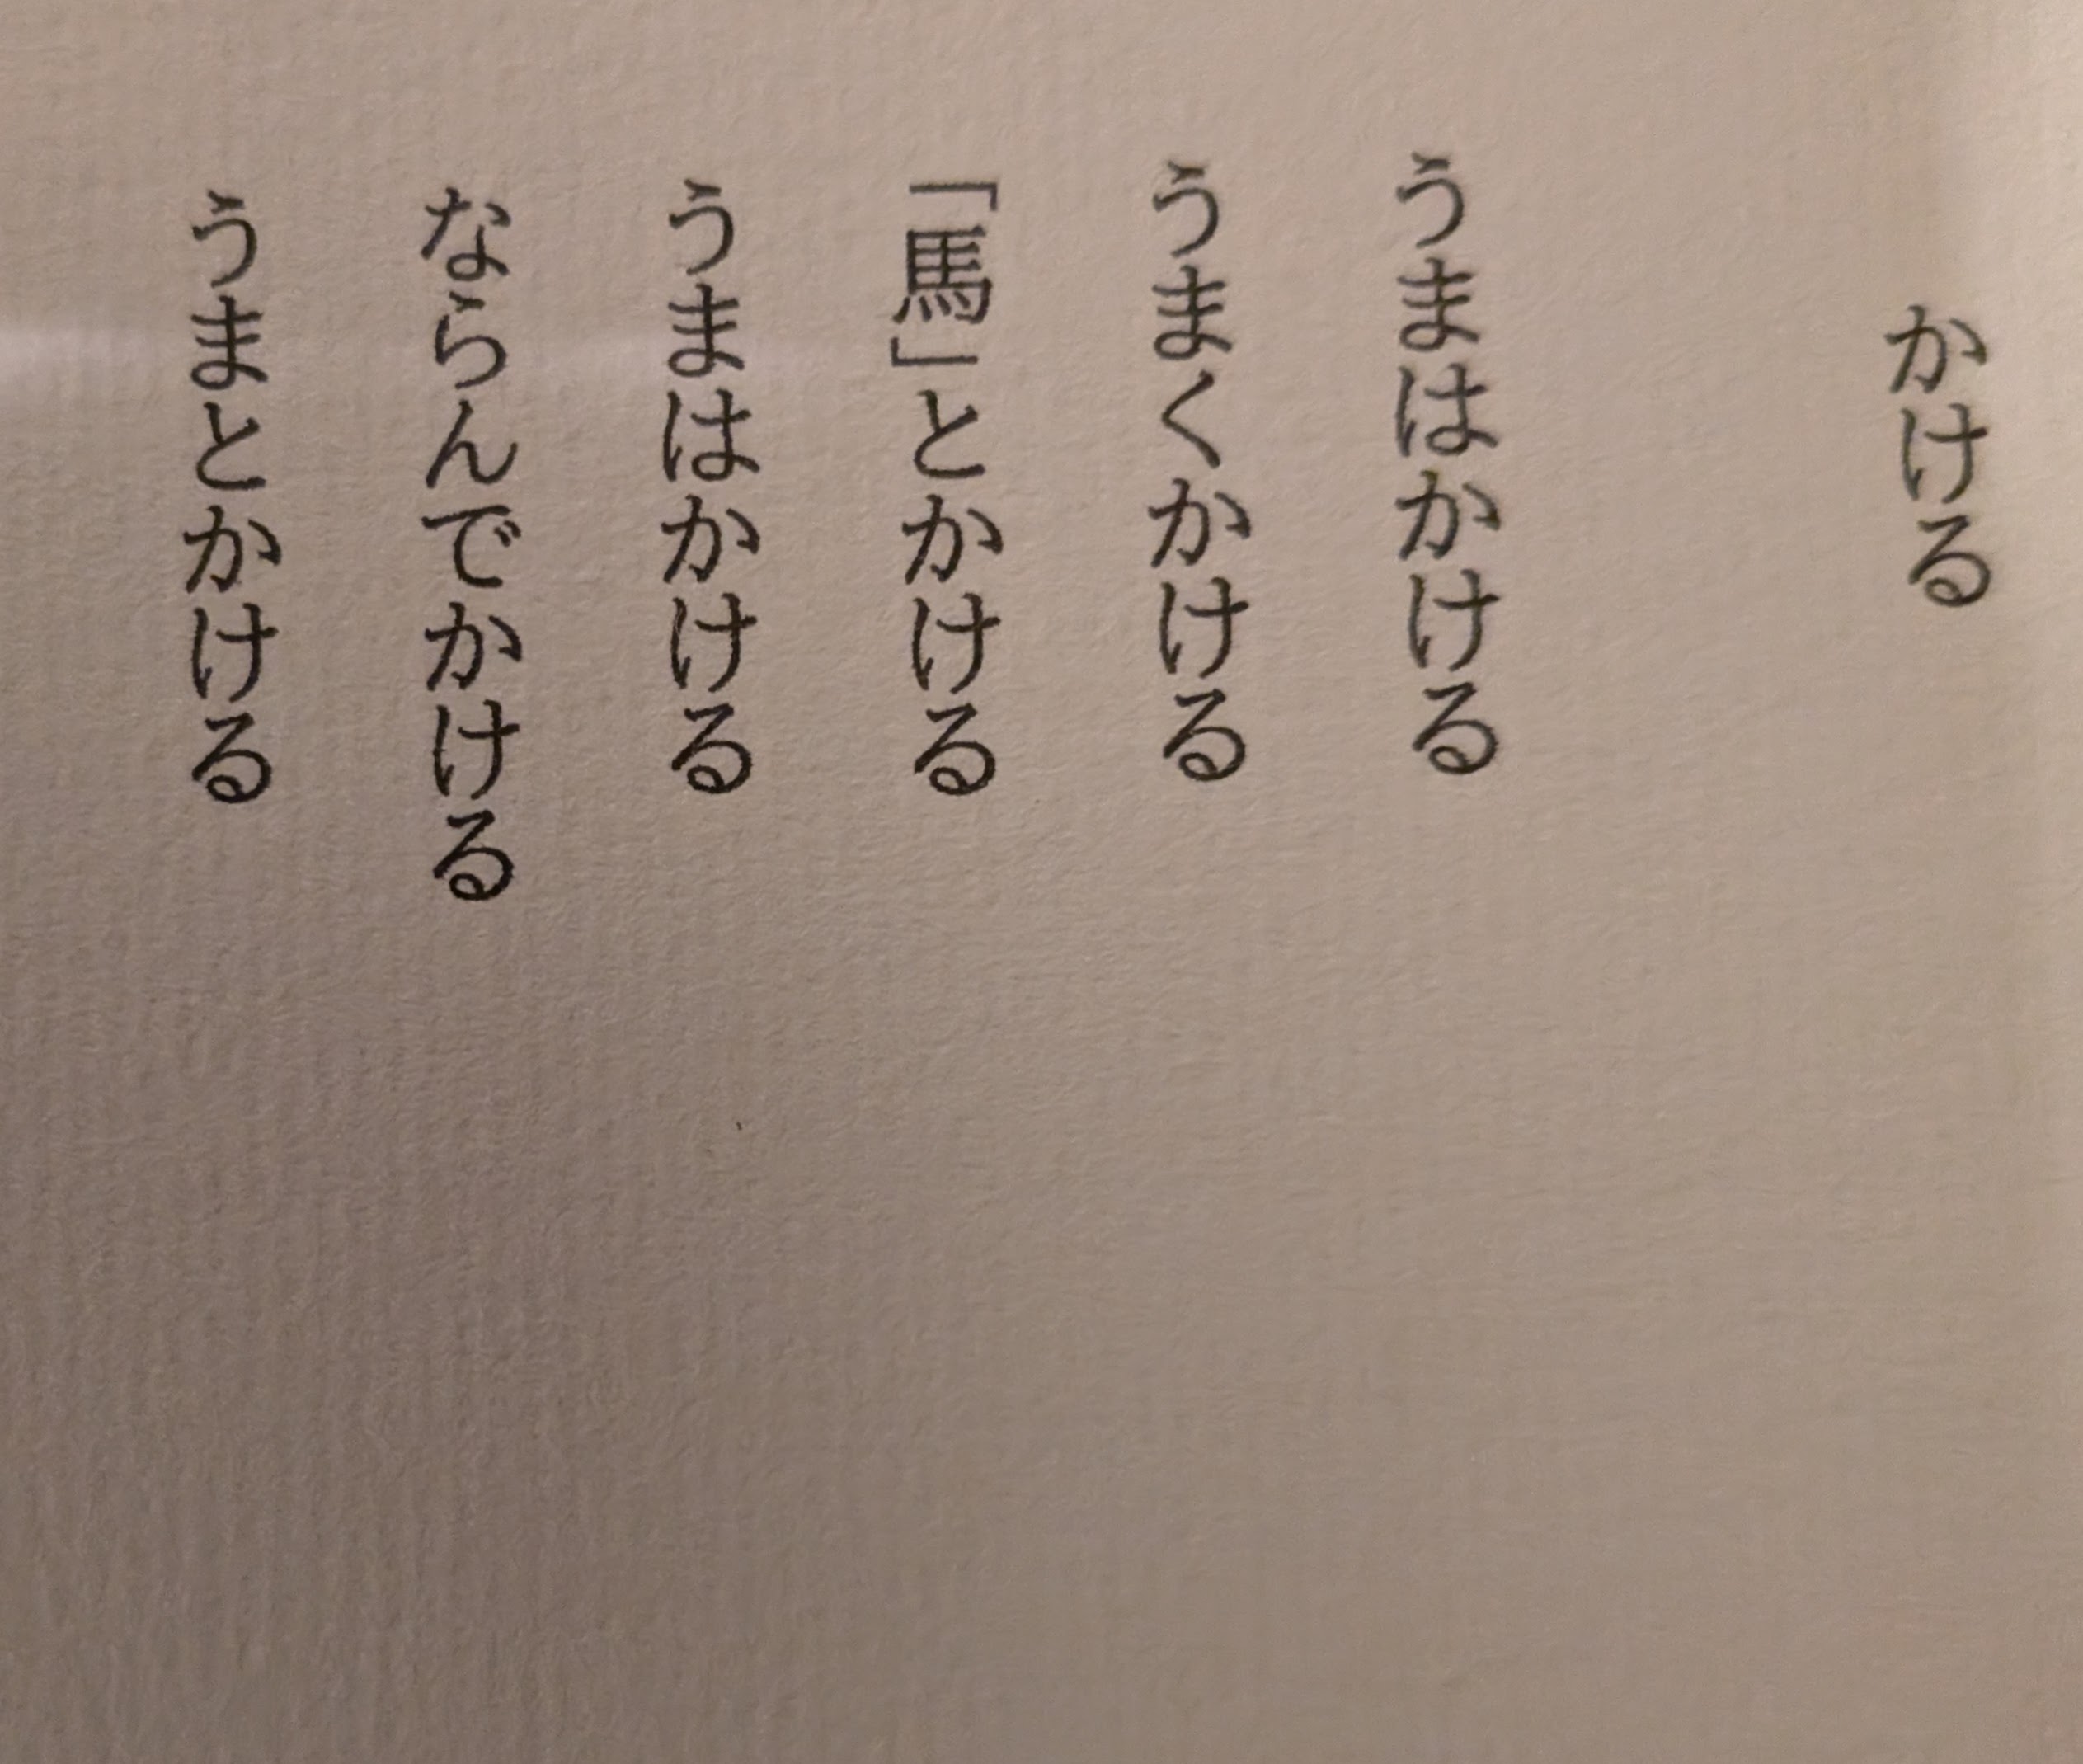 かける
うまはかける
うまくかける
「馬」とかける
うまはかける
ならんでかける
うまとかける